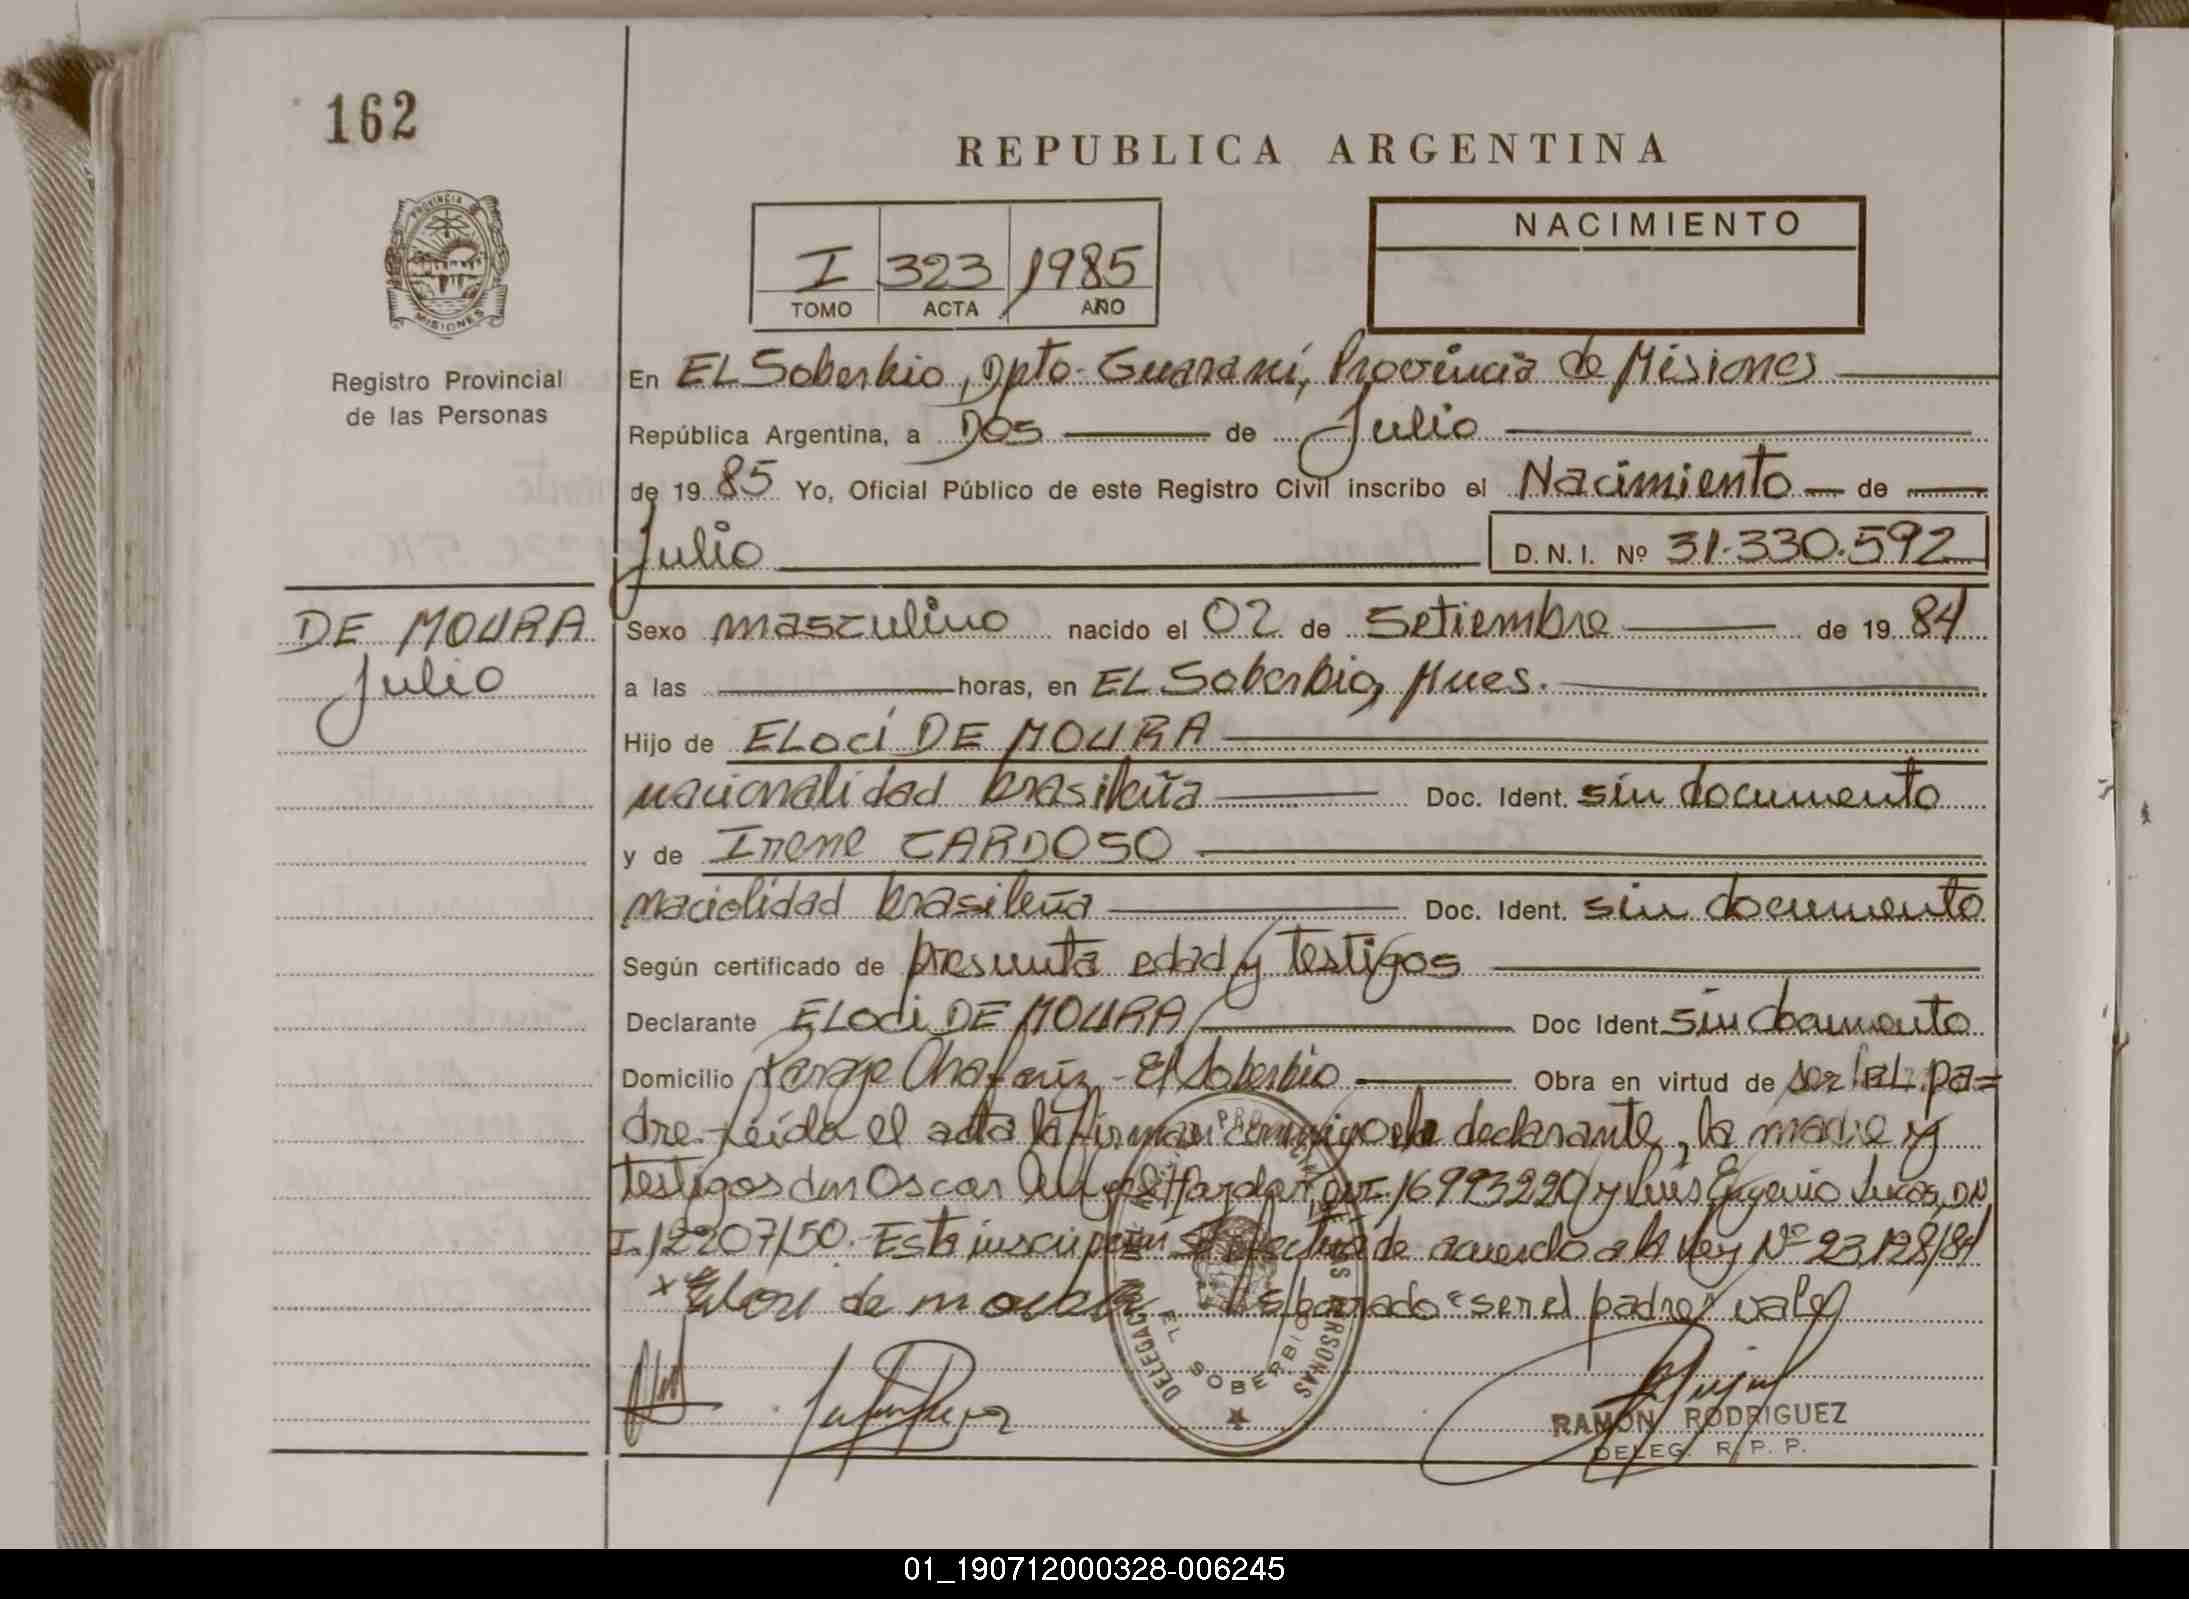 162
REPUBLICA ARGENTINA
PROVINCIA
MISIONES
Registro Provincial
de las Personas
NACIMIENTO
I 323 1985
TOMO ACTA AÑO
En EL Soberbio, Dpto. Guaraní, Provincia de Misiones
República Argentina, a Dos de Julio
de 19 85 Yo, Oficial Público de este Registro Civil inscribo el Nacimiento de
Julio D. N. I. Nº 31.330.592
DE MOURA
Julio
Sexo masculino nacido el 02 de Setiembre de 19 84
a las horas, en EL Soberbio, Mnes.
Hijo de ELoci DE MOURA
nacionalidad brasileña Doc. Ident. sin documento
y de Irene CARDOSO
naciolidad brasileña Doc. Ident. sin documento
Según certificado de presunta edad y testigos
Declarante ELoci DE MOURA Doc Ident sin documento
Domicilio Paraje Chafariz - El Soberbio Obra en virtud de ser EL pa=
dre. Leída el acta la firman conmigo el declarante, la madre y
testigos don Oscar 16993220 y Luis Eugenio DN
I. 12207150. Esta inscripción se efectúa de acuerdo a la Ley Nº 23.128/84
x Eloci de moura borrado "ser el padre" vale
DELEGACION EL SOBERBIO
PERSONAS
RAMON RODRIGUEZ
DELEG. R. P. P.
01_190712000328-006245